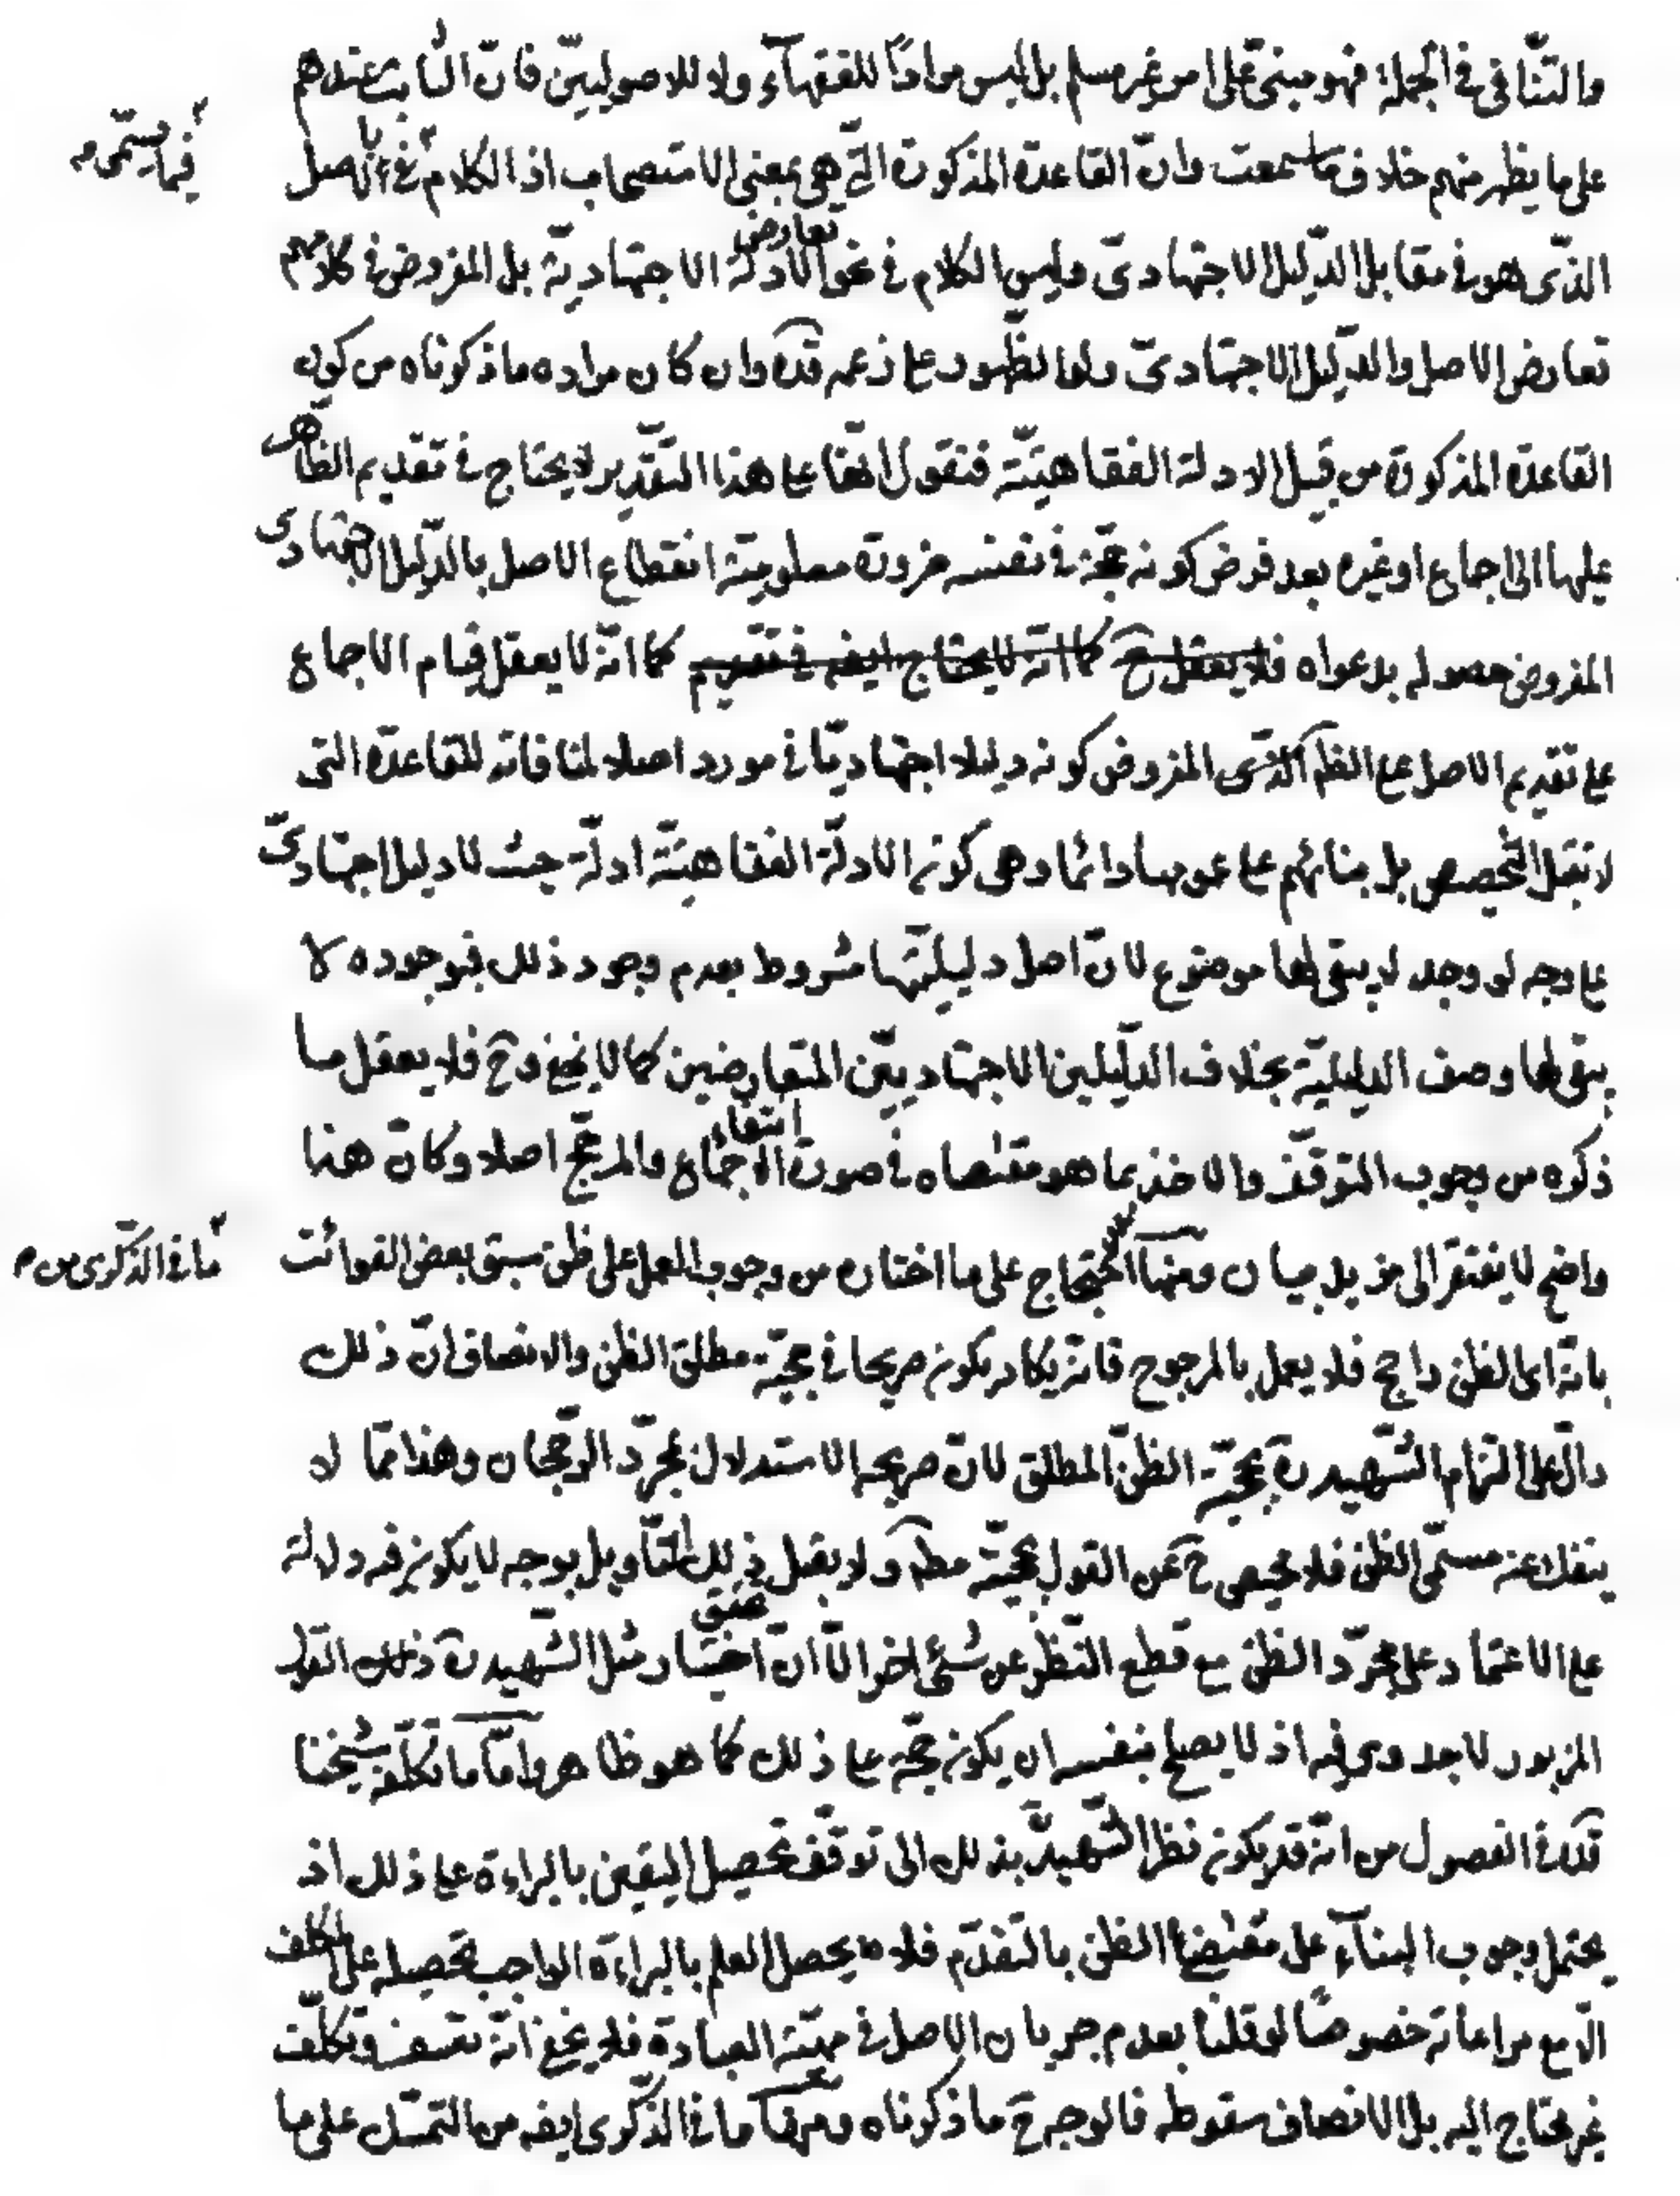 والتّنافی فی الجملة فهو مبنیّ علی امر غیر مسلم بل لیس مرادًا للفقهآء ولا للاصولیین فانّ الثابت عندهم
علی ما یظهر منهم خلاف ما سمعت وانّ القاعدة المذکورة الّتی هی بمعنی الاستصحاب اذ الکلام فی الاصل
فیما یسمّی
الذّی هو فی مقابل الدّلیل الاجتهادیّ ولیس الکلام فی نحو تعارض الادلّة الاجتهادیّة بل المفروض فی کلامهم
تعارض الاصل والدّلیل الاجتهادیّ ولو الظّهور علی زعمه قدّه وان کان مراده ما ذکرناه من کون
القاعدة المذکورة من قبیل الادلة الفقاهیّة فنقول انّها علی هذا التّقدیر لا یحتاج فی تقدیم الظّاهر
علیها الی اجماع او غیره بعد فرض کونه حجّة فی نفسه ضرورة معلومیّة انقطاع الاصل بالدّلیل الاجتهادی
المفروض حصوله بدعواه فلا یعقل ح کما انّه لا یحتاج ایضه فی تقدیم کما انّه لا یعقل قیام الاجماع
علی تقدیم الاصل علی الظّه الّذی المفروض کونه دلیلا اجتهادیّا فی مورد اصلا لمنافاته للقاعدة التی
لا تقبل التّخصیص بل بنائهم علی عمومها دائما وهی کون الادلّة الفقاهیّة ادلّة حیث لا دلیل اجتهادیّ
علی وجه لو وجد لا یبقی لها موضوع لانّ اصل دلیلیّتها مشروط بعدم وجود ذلک فبوجوده لا
یبقی لها وصف الدلیلیّة بخلاف الدّلیلین الاجتهادیّین المتعارضین کما لا یخفی وح فلا یعقل ما
ذکره من وجوب التوقّف والاخذ بما هو مقتضاه فی صورة انتفاء الاجماع والمرجّح اصلا وکانّ هذا
واضح لا یفتقر الی مزید بیان ومنها الاحتجاج علی ما اختاره من وجوب العمل علی ظنّ سبق بعض الفوائت
ما فی الذّکری من
بانّه ای الظنّ راجح فلا یعمل بالمرجوح فانّه یکاد یکون صریحا فی حجیّة مطلق الظنّ والانصاف انّ ذلک
دالّ علی التزام الشّهید ره بحجیّة الظنّ المطلق لانّ صریحه الاستدلال بمجرّد الرّجحان وهذا ممّا لا
ینفک عنه مسمّی الظنّ فلا محیص ح عن القول بحجیّة مطه ولا یقبل ذلک التّأویل بوجه لا یکون فیه دلالة
علی الاعتماد علی مجرّد الظنّ مع قطع النّظر عن شئ اخر الّا انّ اختیار مثل الشّهید ره ذلک القول
المزبور لا جدوی فیه اذ لا یصلح بنفسه ان یکون حجّة علی ذلک کما هو ظاهر وامّا ما تکلّفه شیخنا
قدّه فی الفصول من انّه قد یکون نظر الشّهید ره بذلک الی توقّف تحصیل الیقین بالبراءة علی ذلک اذ
یحتمل وجوب البنآء علی مقتضی الظنّ بالتقدّم فلا یحصل العلم بالبراءة الواجب تحصیله علی المکلف
الّا مع مراعاته خصوصًا لو قلنا بعدم جریان الاصل فی مهیّة العبادة فلا یخفی انّه تعسف وتکلّف
غیر محتاج الیه بل الانصاف سقوطه فالوجه ح ما ذکرناه ومنها ما فی الذّکری ایضه من التمسّک علی ما